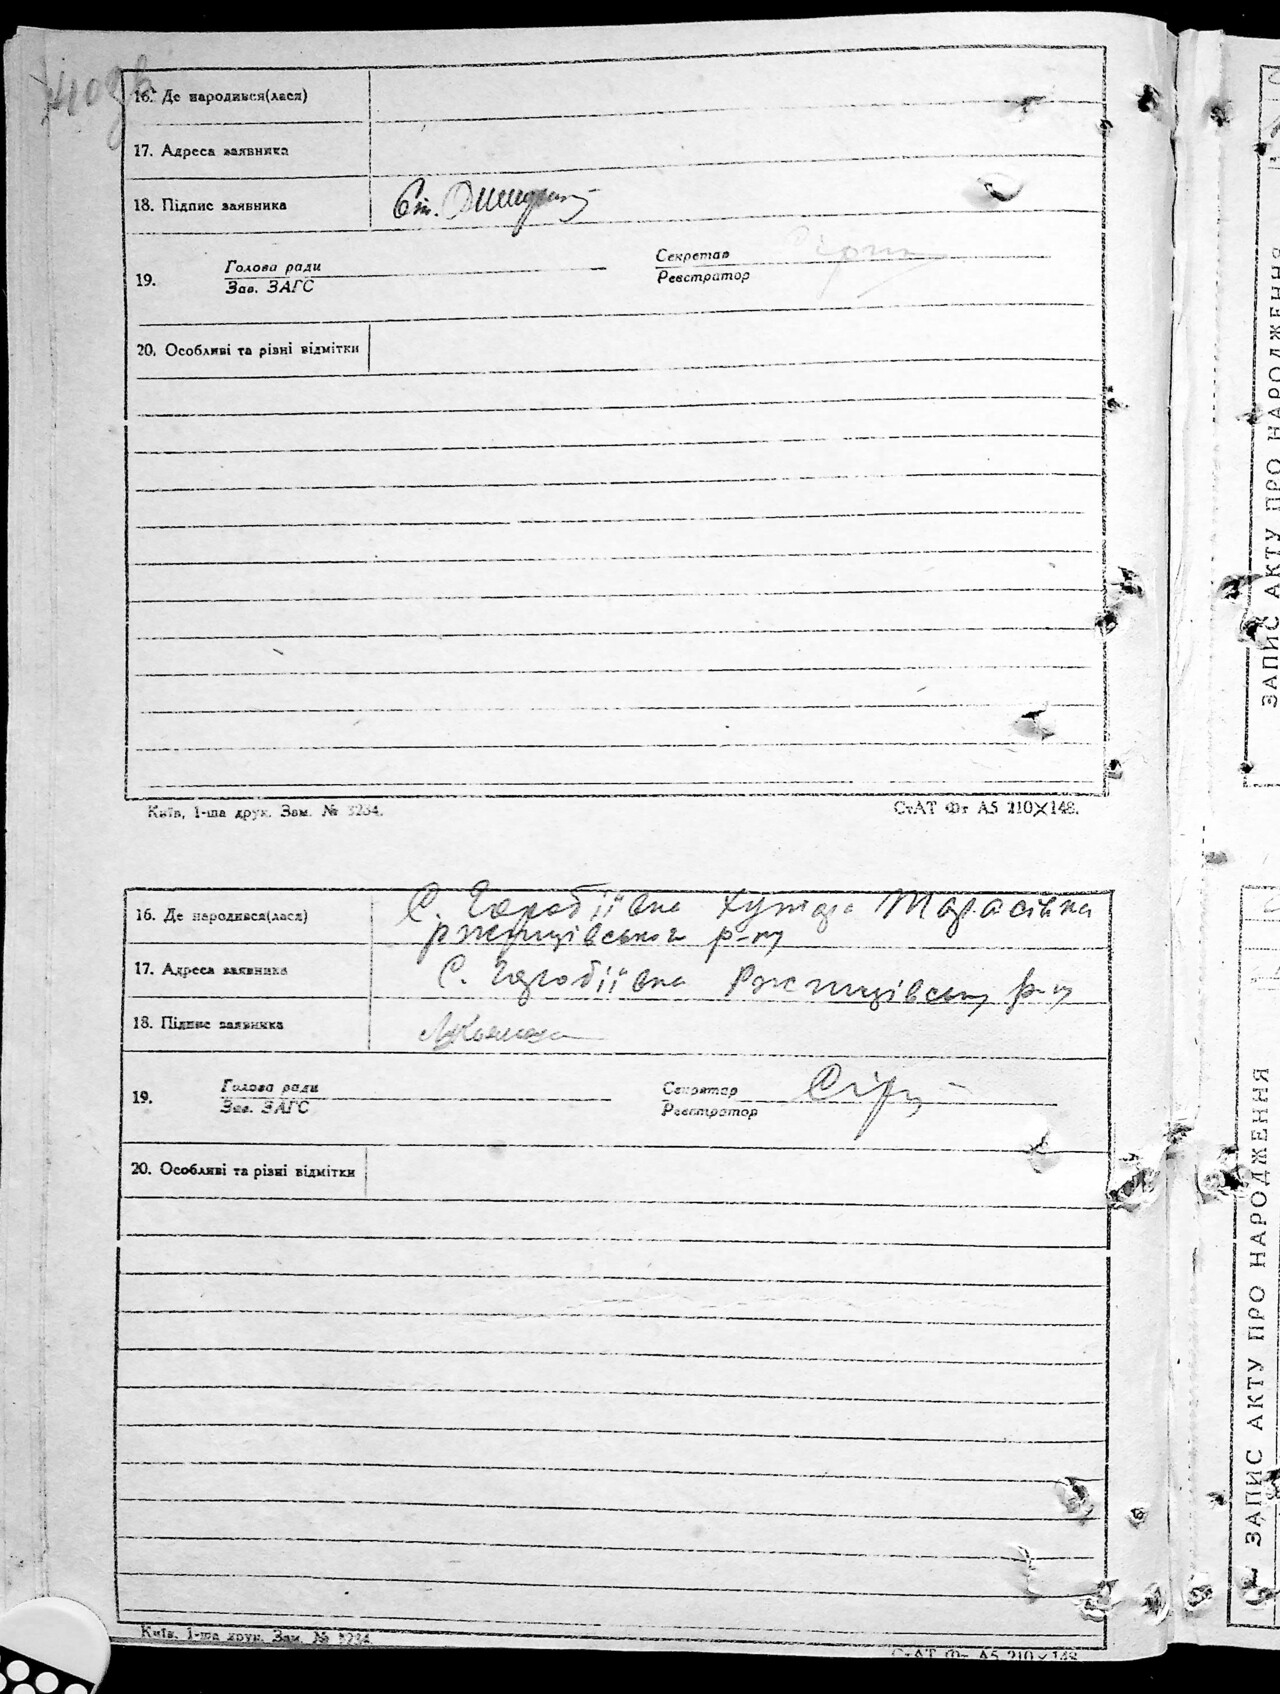 16. Де народився(лася)
17. Адреса заявника
18. Підпис заявника
19. Голова ради Секретар
Зав. ЗАГС Реєстратор
20. Особливі та різні відмітки
Київ, 1-ша друк. Зам. № 3234. СтАТ Фт А5 210×148.
16. Де народився(лася) С. Горобіївка Хутор Тарасівка
ржищівського р-ну
17. Адреса заявника С. Горобіївка Ржищівськ р-ну
18. Підпис заявника
19. Голова ради Секретар
Зав. ЗАГС Реєстратор
20. Особливі та різні відмітки
Київ, 1-ша друк. Зам. № 3234. СтАТ Фт А5 210×148
ЗАПИС АКТУ ПРО НАРОДЖЕННЯ
ЗАПИС АКТУ ПРО НАРОДЖЕННЯ